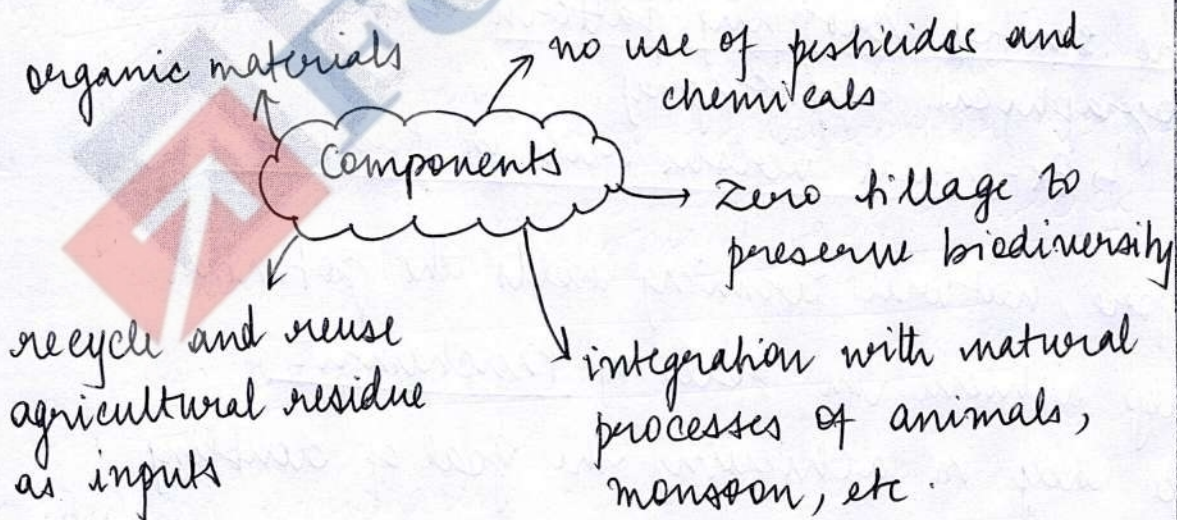 organic materials
no use of pesticides and
chemicals
Components
Zero tillage to
preserve biodiversity
recycle and reuse
agricultural residue
as inputs
integration with natural
processes of animals,
monsoon, etc.